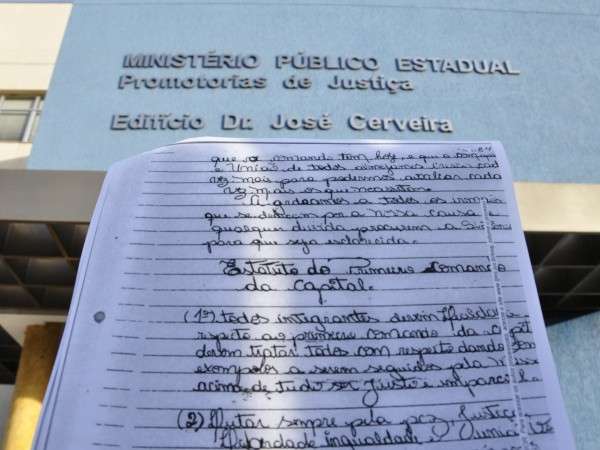 MINISTÉRIO PÚBLICO ESTADUAL
Promotorias de Justiça
Edifício Dr. José Cerveira
que o comando tem hoje, e que o
e União de todos
vez mais para podermos atender cada
vez mais os que necessitam.
A gradeamos a todos os
que se dedicam por a nossa causa e
qualquer duvida procurem a
para que seja esclarecida.
Estatuto do Primeiro Comando
da Capital.
(1º) todos integrantes devem
respeito ao primeiro comando da
devem tratar todos com respeito dando
exemplos a serem seguidos pela
acima de tudo ser justo e imparcial
(2) Lutar sempre pela paz, Justiça
liberdade, ingualdade e União